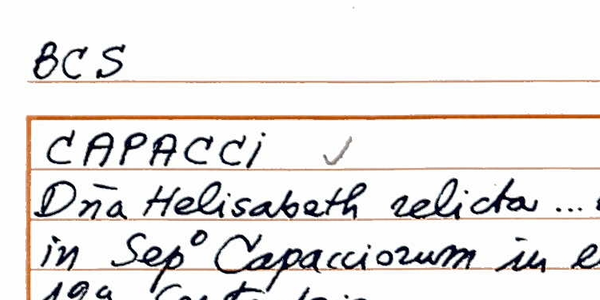 BCS
CAPACCI
Dña Helisabeth relicta ...
in Sepº Capacciorum in